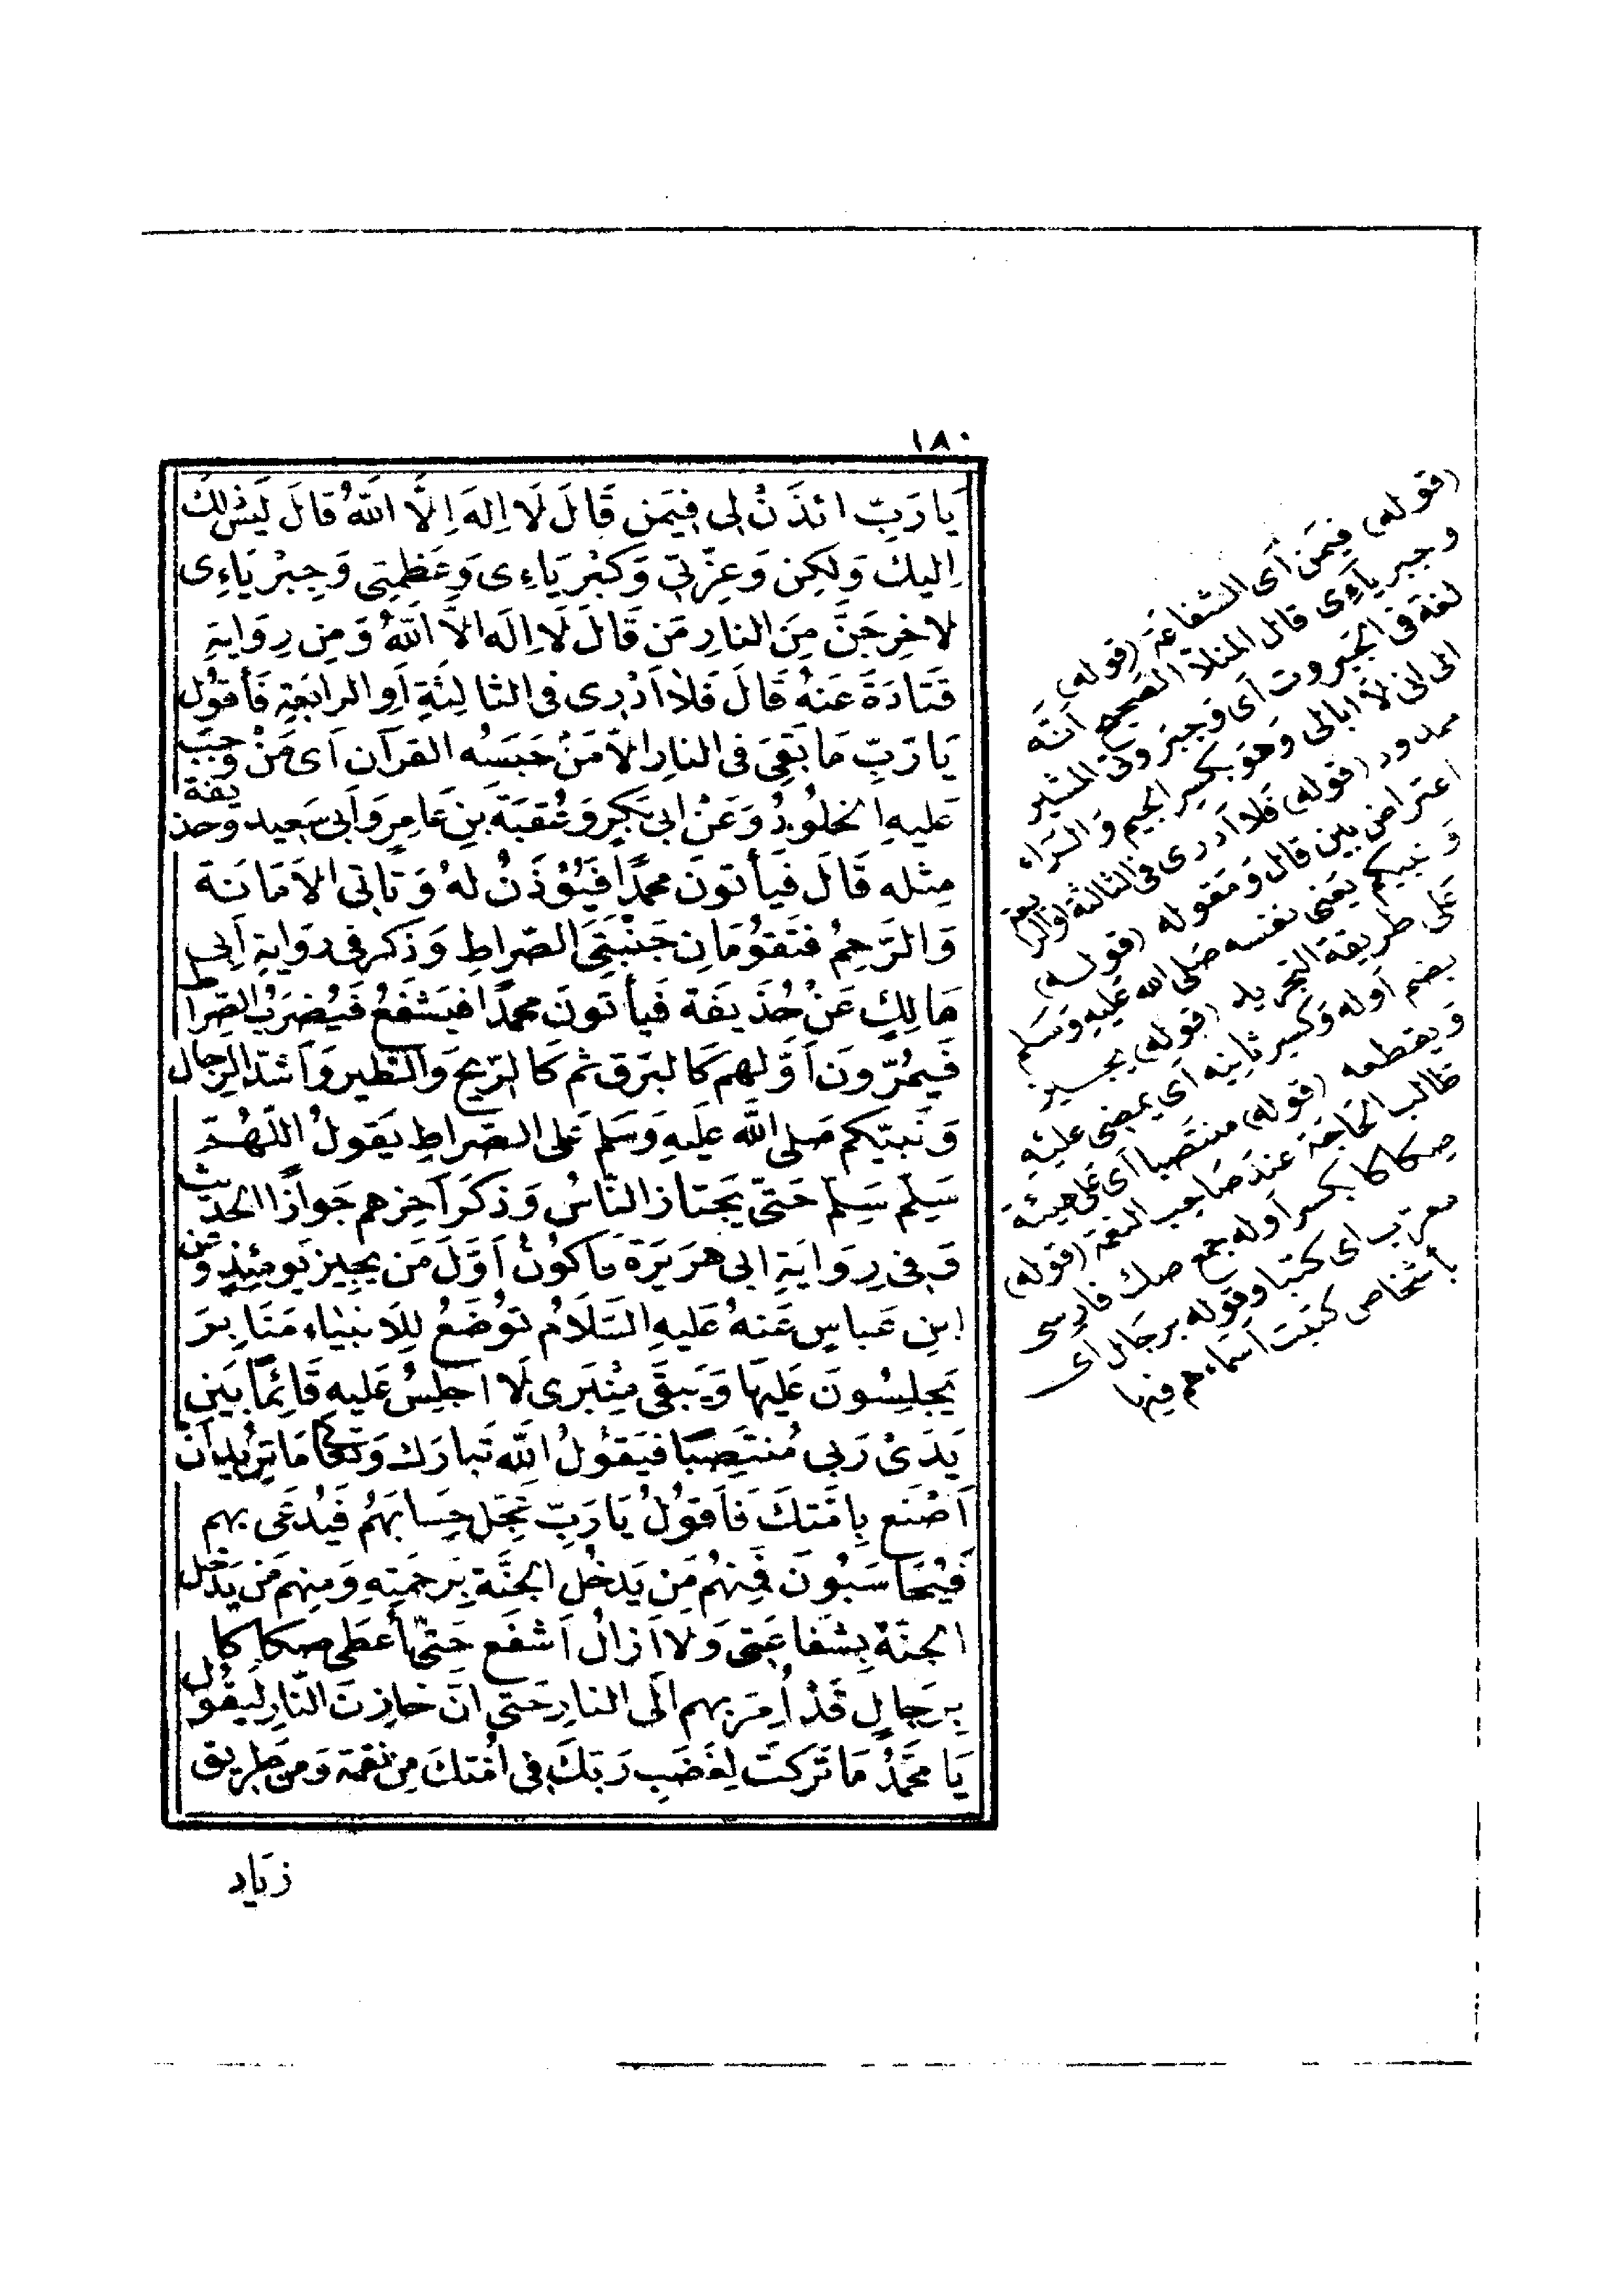 ١٨٠
يَا رَبِّ ائذَنْ لِى فِيمَنِ قَالَ لَا اِلهَ اِلَّا اللّٰهُ قالَ لَيْسَ لَكَ
اِليكَ وَلكِن وَعِزّتِى وَكبْرِيَاءِى وَعَظمتِى وَجِبْريَاءِى
لاخرِجَنَّ مِنَ النارِ مَن قَالَ لَا اِلهَ الاَّ اللّٰهُ وَمِن رِوَايةِ
قَتَادَةَ عَنهُ قَالَ فَلَا اَدْرِى فى الثالِثةِ اَوِ الرابعَةِ فَأقوُل
يَا رَبِّ مَا بَقِىَ فى النارِ الاَّ مَنْ حَبَسَه القرآن اَى مَنْ وَجَبَ
عَليهِ الخلُودُ وَعَنْ ابى بَكرٍ وَعُقبَة بنِ عَامِرٍ وَاَبى سَعيد وحذيفة
مِثله قَالَ فَيَأتونَ محمدًا فيُؤذَنُ لهُ وَتَاتى الاَمَانَة
وَالرَّحِمُ فتَقوُمَانِ جَنْبَتَىِ الصِّراطِ وَذكر فى رِوَايةِ اَبى
مَالِكٍ عَنْ حُذَيفَة فَيأتونَ محمدًا فيَشفَعُ فَيُضرَبُ الصِّراط
فَيمُرّونَ اَوَّلهم كَالبَرَق ثم كَالرِّيحِ وَالطَّيرِ وَاَشدّ الرِّجالِ
وَنَبيّكم صَلى اللّٰه عَليهِ وَسَلم عَلى الصِّراطِ يَقولُ اللّهُمَّ
سَلِّم سَلِّم حَتىّ يَجتازَ النَّاسُ وَذكَرَ آخِرهم جَوازًا الحَديث
وَفى رِوَايَةِ ابى هرَيرَة فَاكوُنُ اَوَّلَ مَن يجيِز يَومَئذٍ وَعَن
ابنِ عَباسٍ عَنهُ عَليهِ السَّلاَمُ توُضَعُ لِلاَنبيَاء مَنَابِر
يَجلِسُونَ عَليهَا وَيَبقَى مِنْبَرى لَا اَجلِسُ عَليهِ قَائِمًا بَينَ
يَدَىْ رَبى مُنتصِبًا فيَقوُلُ اللّٰه تَبارَك وَتعَالى مَا تُرِيدُ اَنْ
اَصْنَع بِامّتكَ فَاَقوُلُ يَا رَبِّ عَجّل حِسَابَهُم فَيُدعَى بهِم
فَيُحَاسَبُونَ فمِنهُم مَن يَدخُل الجنَّة بِرَحمَتِهِ وَمِنهم مَن يَدخل
الجنَّةَ بِشَفاعَتِى وَلا اَزالُ اَشفَع حَتىّ اُعطَى صِكاكا
بِرجَالٍ قَدْ اُمِرَ بهِم الَى النارِ حَتى انَّ خازِنَ النَّارِ لَيقُول
يَا محَمَّدُ مَا تَركتَ لِغَضَبِ رَبّكَ فِى اُمَّتكَ مِن نقمَة وَمن طَرِيق
زيَاد
(قوله) فِيمَن اَى الشفاعَة (قوله)
وجبرياءِى قال المنلا الصَّحيح انَّه
لغة فى الجَبَروت اَى وَجبرَوتى المشير
الى انى لا ابالى وَهوَ بكسر الجيم وَالرَّاء
ممدود (قوله) فلا اَدرى فى الثالثة اَو الرابعة
اعتراض بين قال وَمَقوله (قوله)
وَنبيكم يعَنى نفسه صَلى الله عَليهِ وَسَلم
عَلى طريقة التجريد (قوله) يجيز
بضم اوله وَكسر ثانيه اَى يمضى عليه
وَيقطعه (قوله) منتَصبا اَى عَلى هيئة
طالب الحَاجَة عندَ صَاحِب النعمة (قوله)
صِكاكا بكسر اَوله جمع صك فارِسى
معرّب اى كتبا وقوله برجَال اَى
بأشخاص كتبت اَسماءهم فيها